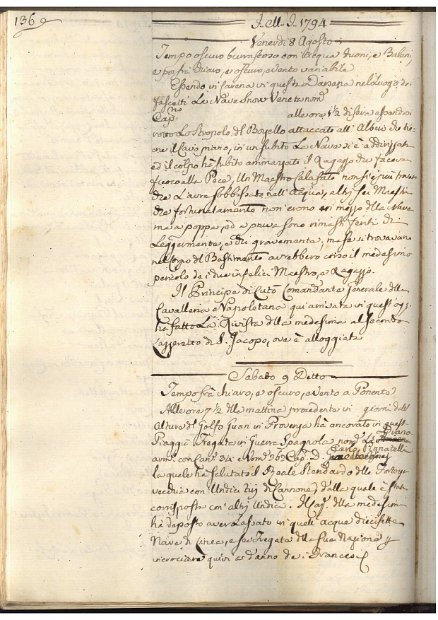 136
A.M.D. 1794
Venerdì 8 Agosto
Tempo oscuro burrascoso con Acqua Tuoni, e Baleni,
e poi frà chiaro, e oscuro, e Vento variabile
Essendo in Carena in questa Darsena nel Luogo de
Vascelli La Nave Snow Veneta nom.
Cap.no alle ore 1/2 di sera essendosi
rotto Lo Stropolo del Bozello attaccato all' Albero
il Cavo piano, in un subito La Nave si è addrizzata
ed il colpo hà subito ammazzato il Ragazzo che faceva
fuoco alla Pece, Un Maestro Calafato non si è più trovato
altri sei Maestri
che fortunatamente non erono in mezzo della Nave
ma a poppa, ed a prua sono rimasti feriti chi
Leggermente, e chi gravemente, ma se si trovavano
nel largo del Bastimento avrebbero corso il medesimo
pericolo de i due infelici Maestro, e Ragazzo.
Il Principe di Cutò Comandante Generale della
Cavalleria Napoletana qui arrivata in quest'oggi
hà fatto La Rivista della medesima al Secondo
Lazzeretto di S. Jacopo, ove è alloggiata
Sabato 9 Detto
Tempo frà chiaro, e oscuro, e Vento a Ponente
Alle ore 7 1/2 della mattina procedente in giorni dall'
Altura di Golfo Juan in Provenza hà ancorato in questa
Piaggia Fregata in Guerra Spagnola nom.
arm. con Cann. 34 Uom. Cap. D.
la quale hà salutato il Reale Stendardo della Fortezza
vecchia con Undici tiri di Cannone, dalla quale è stata
corrisposta con altri Undici. Il Cap. della medesima
hà deposto aver lasciato in quelle acque diecisette
Nave di Linea, e sei Fregate della sua Nazione
incrociare quivi a danno de i Francesi